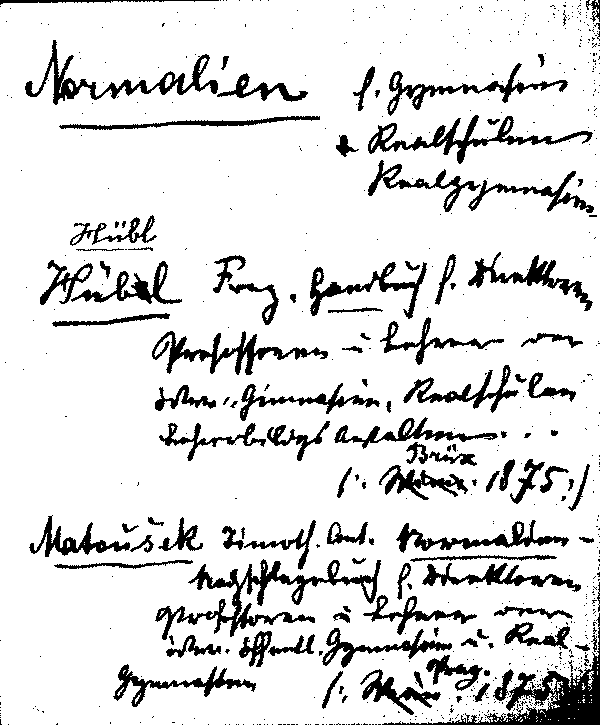 Normalien f. Gymnasien
Realschulen
Realgymnasien
Hübl
Hübl Franz. Handbuch f. Direktoren
Professoren u Lehrer der
österr. Gimnasien, Realschulen
Lehrerbildgs Anstalten . . .
Brüx
(: Wien. 1875:)
Matoušek Timoth. Ant. Normalien -
Nachschlagebuch f. Direktoren
Professoren u Lehrer
österr. öffentl. Gymnasien u. Real-
Gymnasien
Prag.
(: Wien. 1875